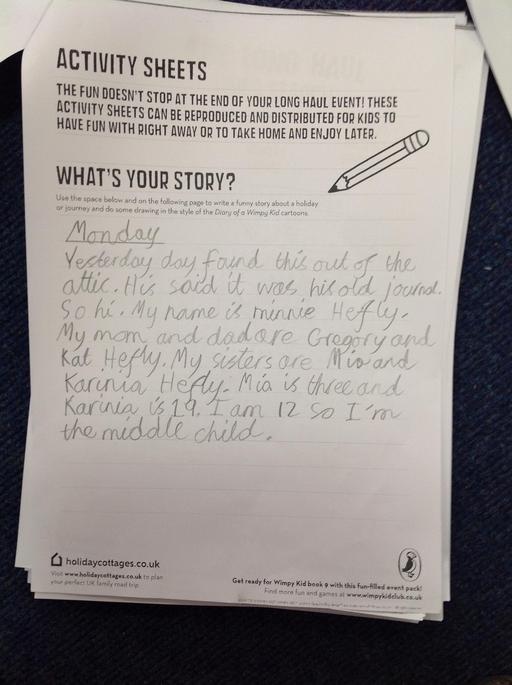 ACTIVITY SHEETS
THE FUN DOESN'T STOP AT THE END OF YOUR LONG HAUL EVENT! THESE
ACTIVITY SHEETS CAN BE REPRODUCED AND DISTRIBUTED FOR KIDS TO
HAVE FUN WITH RIGHT AWAY OR TO TAKE HOME AND ENJOY LATER.
WHAT'S YOUR STORY?
Use the space below and on the following page to write a funny story about a holiday
or journey and do some drawing in the style of the Diary of a Wimpy Kid cartoons.
Monday
Yesterday day found this out of the
attic. His said it was his old journal.
So hi. My name is minnie Hefly.
My mom and dad are Gregory and
Kat Hefly. My sisters are Mia and
Karinia Hefly. Mia is three and
Karinia is 19. I am 12 so I'm
the middle child.
holidaycottages.co.uk
Visit www.holidaycottages.co.uk to plan
your perfect UK family road trip.
Get ready for Wimpy Kid book 9 with this fun-filled event pack!
Find more fun and games at www.wimpykidclub.co.uk